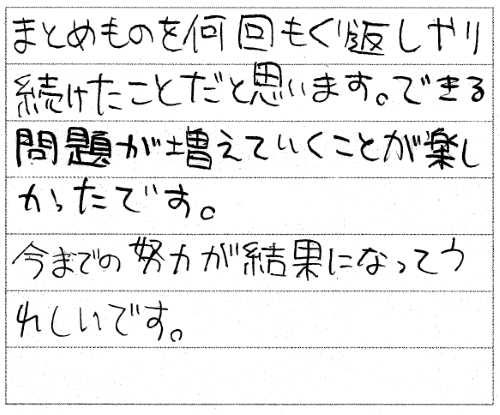 まとめものを何回もくり返しやり
続けたことだと思います。できる
問題が増えていくことが楽し
かったです。
今までの努力が結果になってう
れしいです。